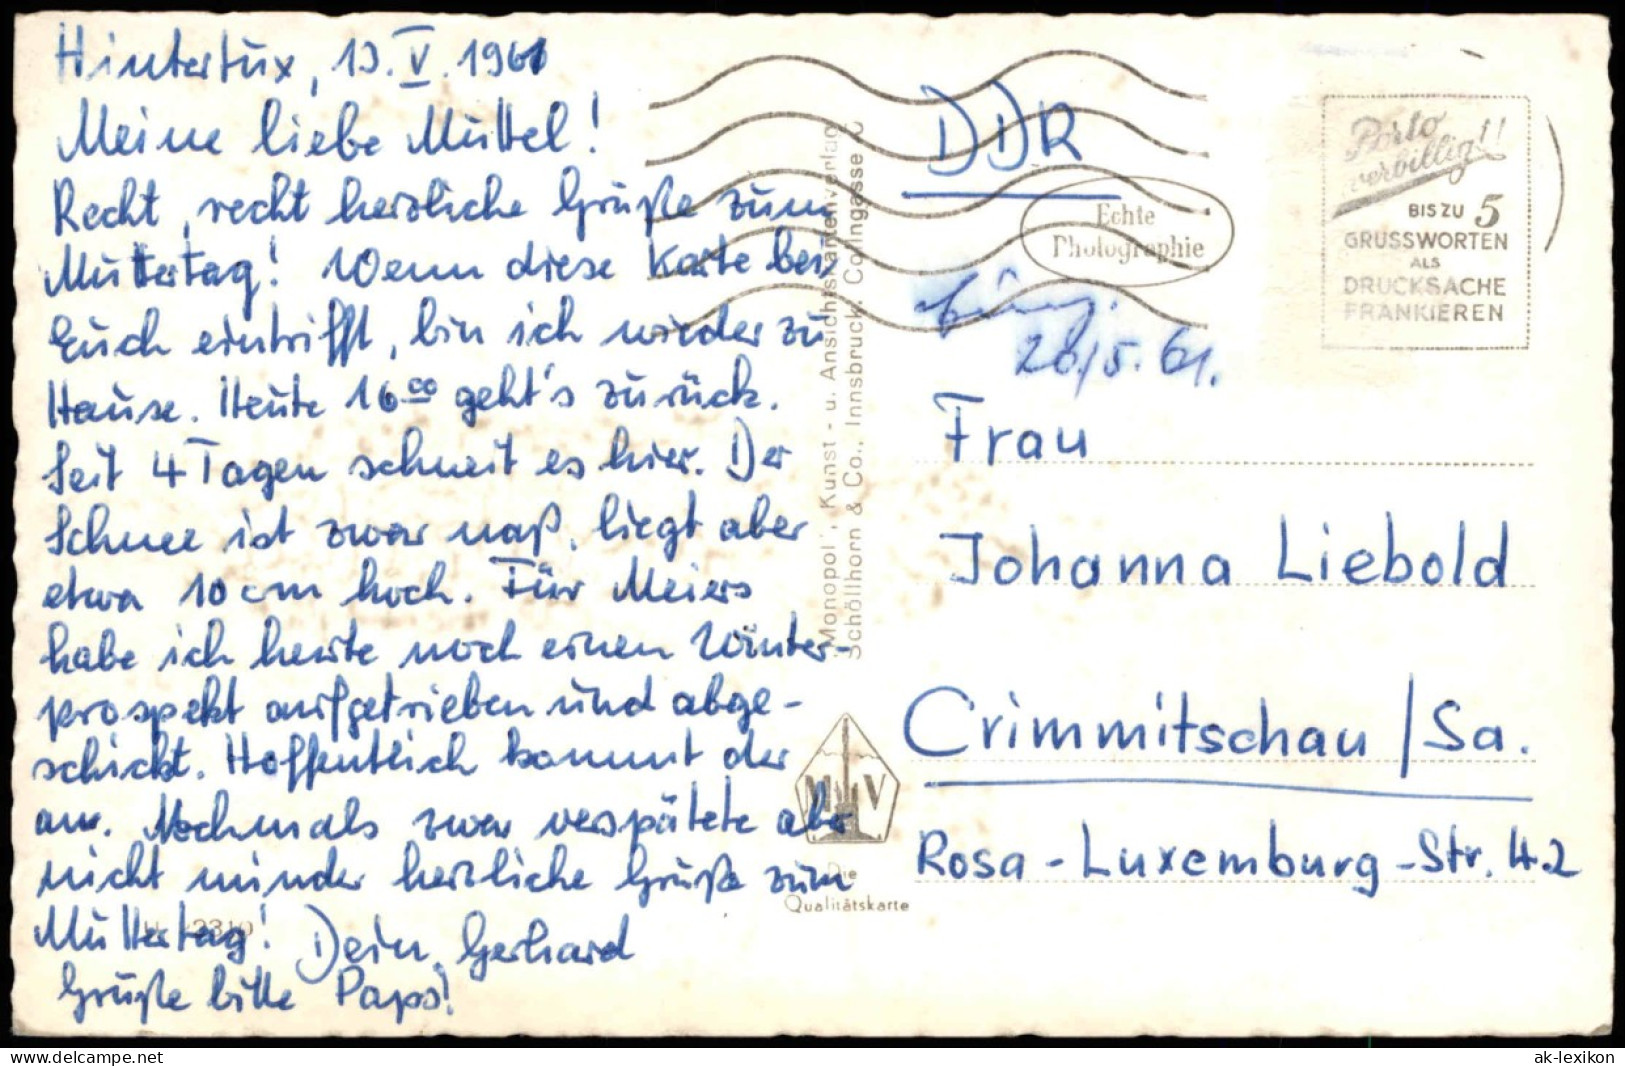 Hintertux, 13.V.1961
Meine liebe Muttel!
Recht, recht herzliche Grüße zum
Muttertag! Wenn diese Karte bei
Euch eintrifft, bin ich wieder zu
Hause. Heute 16⁰⁰ geht's zurück.
Seit 4 Tagen schneit es hier. Der
Schnee ist zwar naß, liegt aber
etwa 10 cm hoch. Für Meiers
habe ich heute noch einen Winter-
prospekt aufgetrieben und abge-
schickt. Hoffentlich kommt der
an. Nochmals zwar verspätete aber
nicht minder herzliche Grüße zum
Muttertag! Dein Gerhard
Grüße bitte Paps!
"Monopol", Kunst- u. Ansichtskartenverlag
Schöllhorn & Co., Innsbruck, Colingasse
M V
Die
Qualitätskarte
DDR
Echte
Photographie
26/5.61.
Porto
verbilligt!!
BIS ZU 5
GRUSSWORTEN
ALS
DRUCKSACHE
FRANKIEREN
Frau
Johanna Liebold
Crimmitschau/Sa.
Rosa-Luxemburg-Str. 42
delcampe.net
ak-lexikon